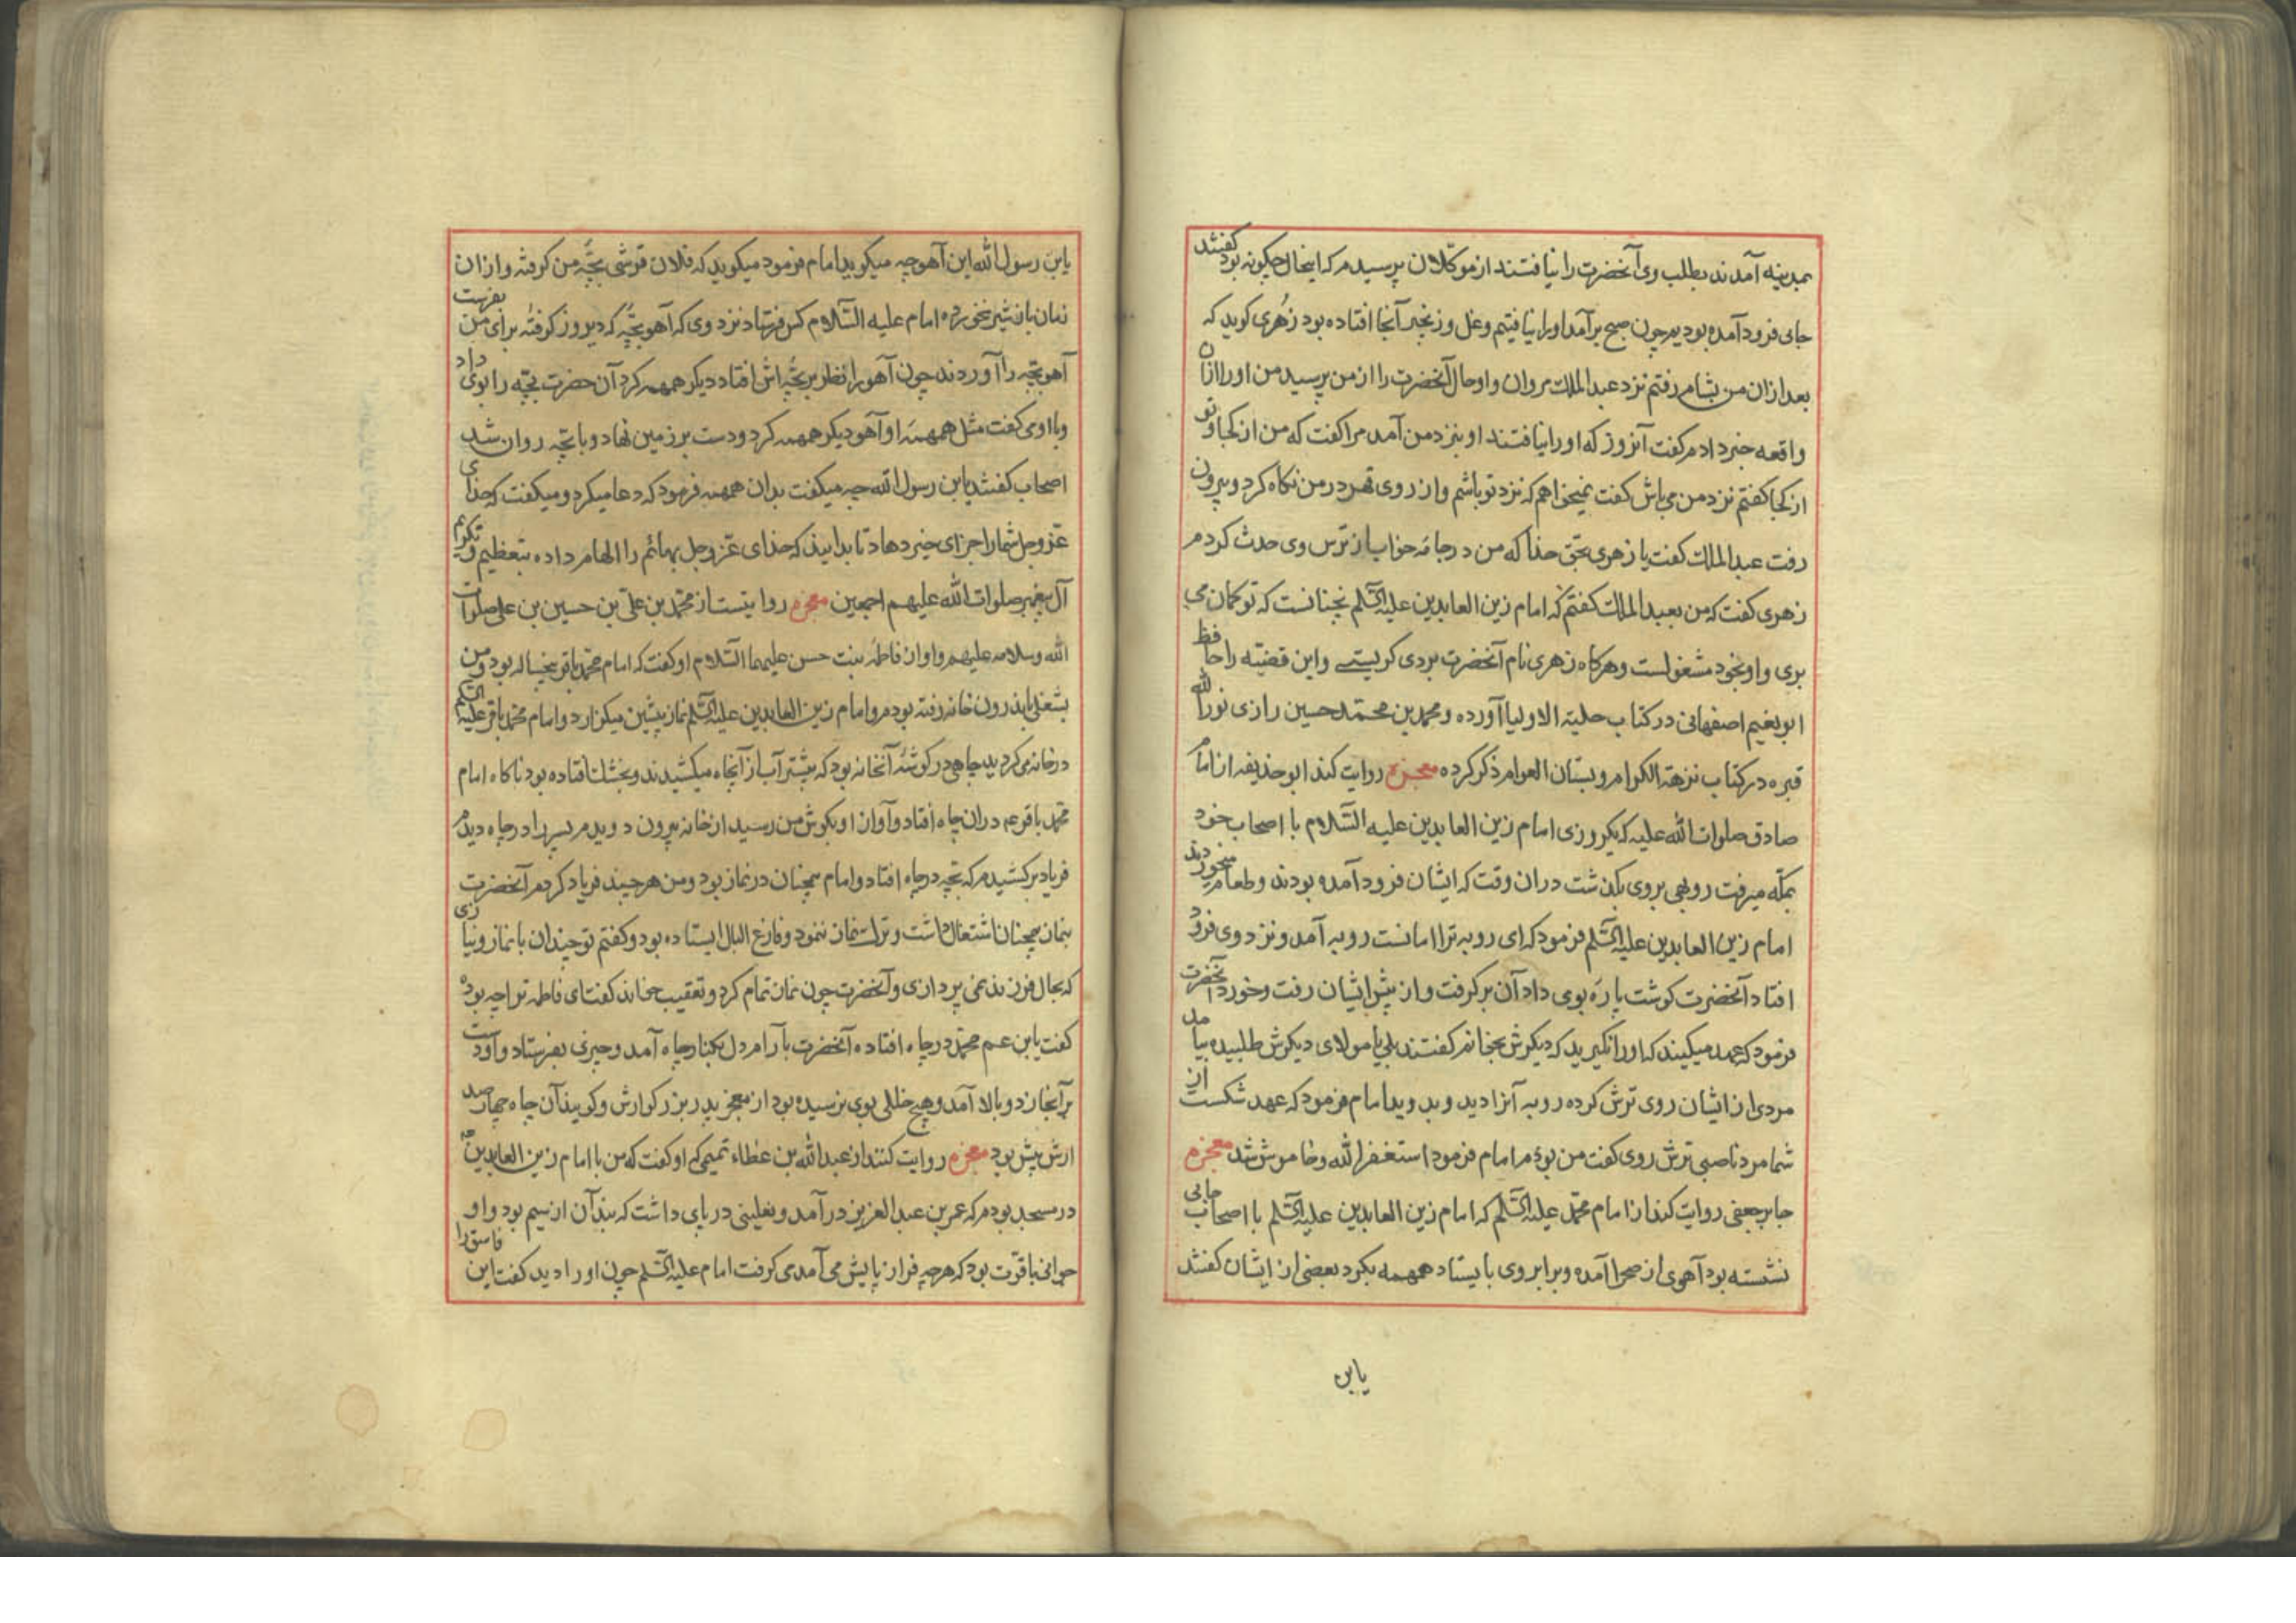 بمدینه آمدند بطلب وی آنحضرت را نیافتند از موکلان پرسیدم که اینحال چگونه بود گفتند
جایی فرود آمده بودیم چون صبح برآمد او را نیافتیم و غل و زنجیر آنجا افتاده بود زهری کوید که
بعد ازان من بشام رفتم نزد عبدالملک مروان و او حال آنحضرت را از من پرسید من او را ازان
واقعه خبر دادم کفت آنروز که او را نیافتند او بنزد من آمد مرا کفت که من از کجا و تو
از کجا کفتم نزد من می باش کفت نمیخواهم که نزد تو باشم و از روی قهر در من نکاه کرد و بیرون
رفت عبدالملک کفت یا زهری بحق خدا که من در جامه خواب از ترس وی حدث کردم
زهری کفت که من بعبدالملک کفتم که امام زین العابدین علیه السلم نچنانست که تو کمان می
بری و او بخود مشغولست و هرکاه زهری نام آنحضرت بردی کریستی و این قضیه را حافظ
ابو نعیم اصفهانی در کتاب حلیة الاولیا آورده و محمد بن محمد حسین رازی نور الله
قبره در کتاب نزهة الکرام و بستان العوام ذکر کرده معجزه روایت کند ابو حذیفه از امام
صادق صلوات الله علیه که یکروزی امام زین العابدین علیه السلام با اصحاب خود
بمکه میرفت روبهی بروی بکذشت دران وقت که ایشان فرود آمده بودند و طعام میخوردند
امام زین العابدین علیه السلم فرمود که ای روبه ترا امانست روبه آمد و نزد وی فرو
افتاد آنحضرت کوشت پاره بوی داد آن برکرفت و از پیش ایشان رفت و خورد آنحضرت
فرمود که عهد میکیند که او را نکیرید که دیکرش بخوانم کفتند بلی یا مولای دیکرش طلبید بیامد
مردی از ایشان روی ترش کرده روبه آنرا دید و بدوید امام فرمود که عهد شکست از
شما مرد ناصبی ترش روی کفت من بودم امام فرمود استغفر الله و خاموش شد معجزه
جابر جعفی روایت کند از امام محمد علیه السلم که امام زین العابدین علیه السلم با اصحاب جایی
نشسته بود آهوی از صحرا آمده و برابر وی بایستاد همهمه بکرد بعضی از ایشان کفتند
یابن
یابن رسول الله این آهو چه میکوید امام فرمود میکوید که فلان قرشی بچه من کرفته و ازان
زمان باز شیر نخورده امام علیه السلام کس فرستاد نزد وی که آهو بچه که دیروز کرفته برای من بفرست
آهو بچه را آوردند چون آهو را نظر بر بچه اش افتاد دیکر همهمه کرد آن حضرت بچه را بوی داد
و با او می کفت مثل همهمه او آهو دیکر همهمه کرد و دست بر زمین نهاد و با بچه روان شد
اصحاب کفتند یابن رسول الله چه میکفت بدان همهمه فرمود که دعا میکرد و میکفت که خدای
عز و جل شما را جزای خیر دهاد تا بدانید که خدای عز و جل بهائم را الهام داده بتعظیم و تکریم
آل پیغمبر صلوات الله علیهم اجمعین معجزه روایتست از محمد بن علی بن حسین بن علی صلوات
الله و سلامه علیهم و او از فاطمه بنت حسن علیهما السلام او کفت که امام محمد باقر پنجساله بود و من
بشغلی باندرون خانه رفته بودم و امام زین العابدین علیه السلم نماز پیشین میکزارد و امام محمد باقر علیه السلم
در خانه می کردید چاهی در کوشه آنخانه بود که بیشتر آب از آنچاه میکشیدند و بخشت افتاده بود ناکاه امام
محمد باقر ع‍م دران چاه افتاد و آواز او بکوش من رسید از خانه بیرون دویدم پسر را در چاه دیدم
فریاد برکشیدم که بچه در چاه افتاد و امام همچنان در نماز بود و من هر چند فریاد کردم آنحضرت
بنماز همچنان اشتغال داشت و ترک نماز ننمود و فارغ البال ایستاده بود و کفتم تو چندان با نماز و نیازی
که بحال فرزند نمی پردازی و آنحضرت چون نماز تمام کرد و تعقیب خواند کفت ای فاطمه ترا چه بوده
کفت یابن عم محمد در چاه افتاده آنحضرت بآرام دل بکنار چاه آمد و چیزی بفرستاد و آورد دست
بر آنجا زد و بالا آمد و هیچ خللی بوی نرسیده بود از معجز پدر بزرکوارش و کویند آن چاه چهارصد
ارش بیش بود معجزه روایت کنند از عبدالله بن عطاء تمیمی که او کفت که من با امام زین العابدین ع‍م
در مسجد بودم که عمر بن عبدالعزیز در آمد و نعلینی در پای داشت که بند آن از سیم بود و او
جوانی با قوت بود که هرچه فراز پایش می آمد می کرفت امام علیه السلم چون او را دید کفت این فاسق را